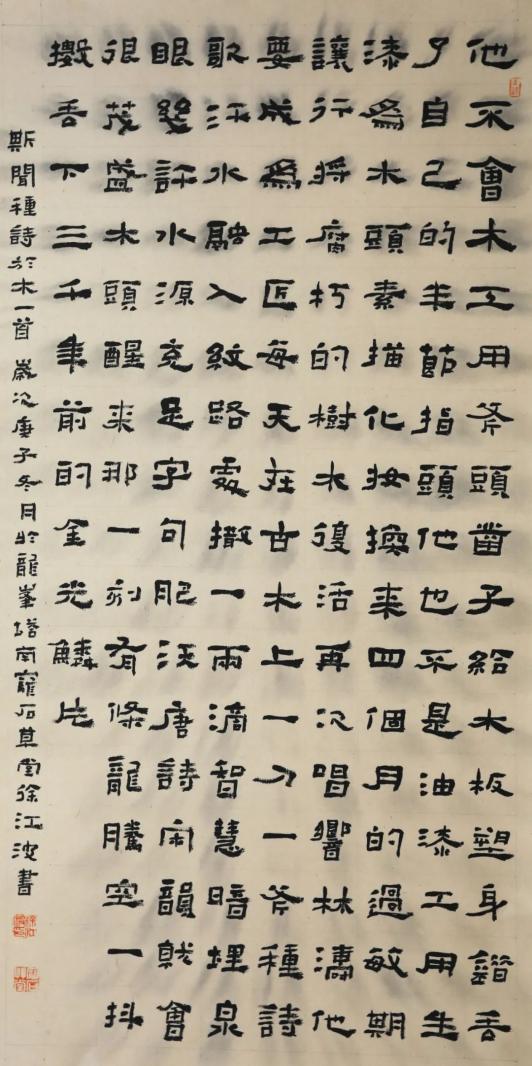 他不會木工用斧頭凿子給木板塑身丟
了自己的半節指頭他也不是油漆工用生
漆為木頭素描化妆換来四個月的過敏期
讓行將腐朽的樹木復活再次唱響林濤他
要成為工匠每天在古木上一刀一斧種詩
歌汗水融入紋路處撒一兩滴智慧暗埋泉
眼幾許水源充足字句肥沃唐詩宋韻就會
很茂盛木頭醒来那一刻有條龍騰空一抖
擻丟下三千年前的金光鱗片
斯聞種詩於木一首 歲次庚子冬月於龍峯塔南寵石草堂徐江波書